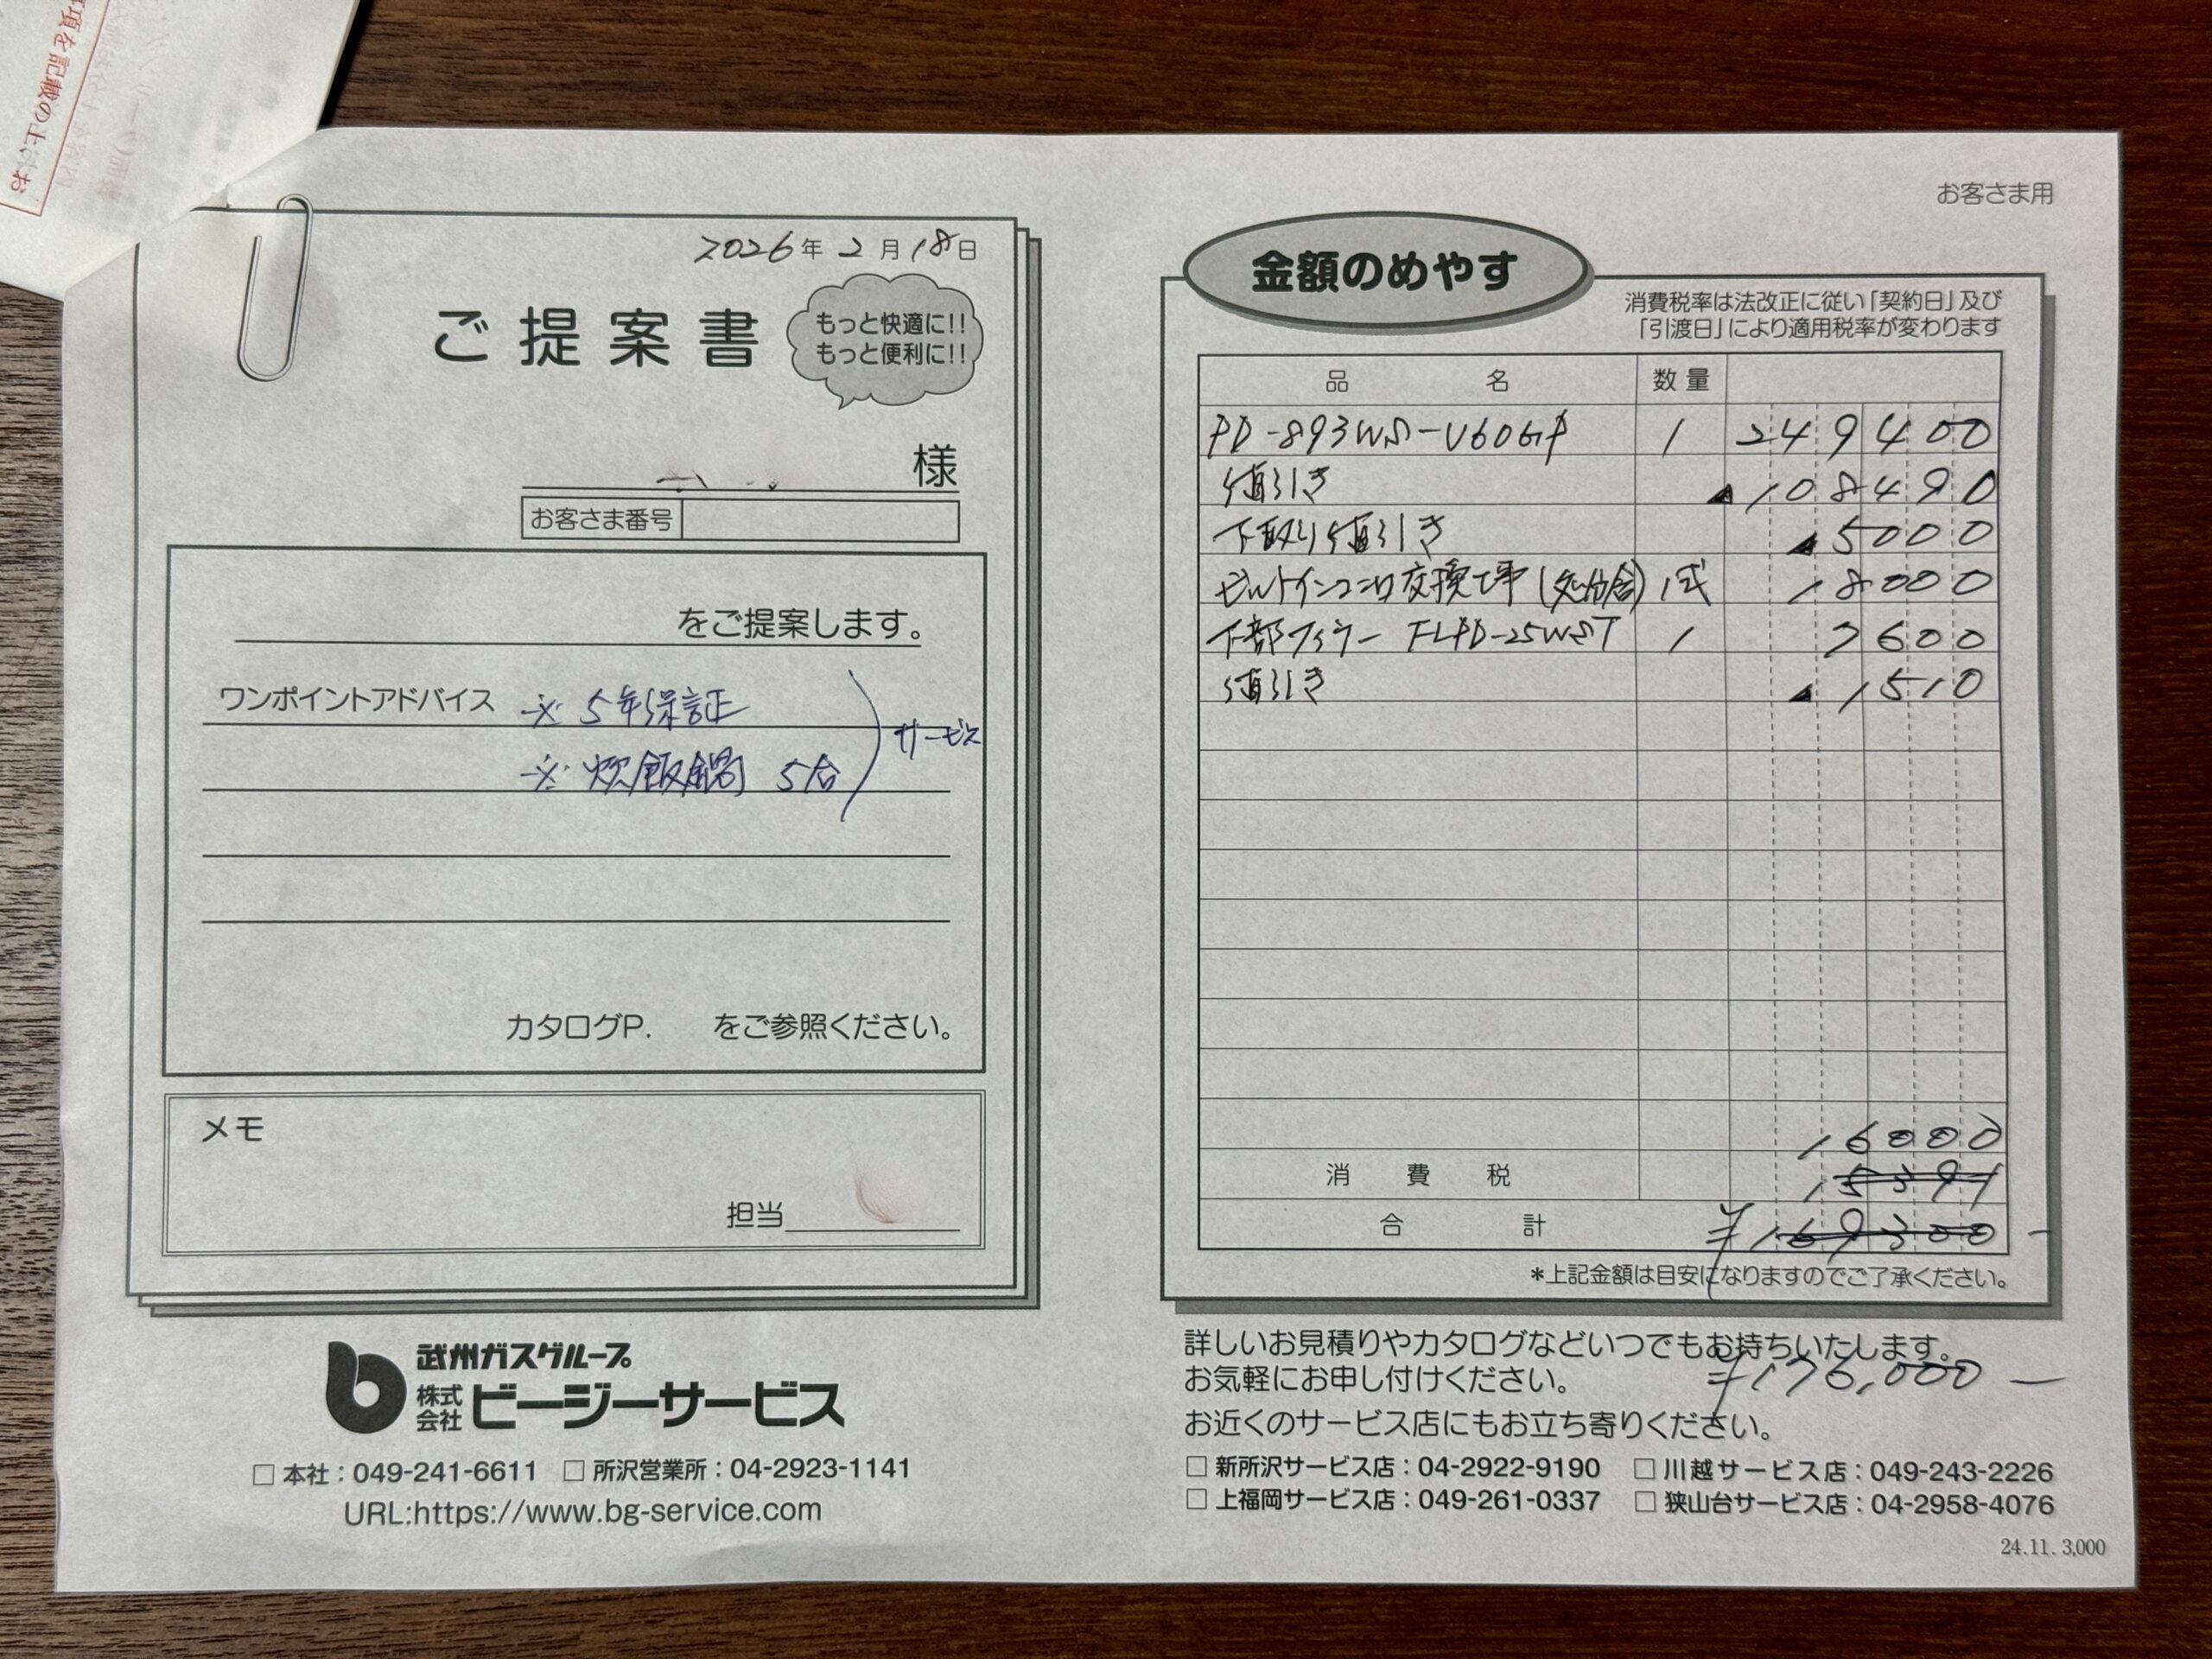 項を記載の上、お
2026年2月18日
ご提案書
もっと快適に!!
もっと便利に!!
様
お客さま番号
をご提案します。
ワンポイントアドバイス ※ 5年保証
※ 炊飯鍋 5合
サービス
カタログP. をご参照ください。
メモ
担当
武州ガスグループ
株式会社 ビージーサービス
□ 本社:049-241-6611 □ 所沢営業所:04-2923-1141
URL:https://www.bg-service.com
お客さま用
金額のめやす
消費税率は法改正に従い「契約日」及び
「引渡日」により適用税率が変わります
品名 数量
PD-893WS-U60GP 1 249400
値引き ▲108490
下取り値引き ▲5000
ビルトインコンロ交換工事(処分含) 1式 18000
下部フィラー FLPD-25WST 1 7600
値引き ▲1510
16000
消費税 15391
合計 ¥169300-
*上記金額は目安になりますのでご了承ください。
詳しいお見積りやカタログなどいつでもお持ちいたします。
お気軽にお申し付けください。 ¥176,000-
お近くのサービス店にもお立ち寄りください。
□ 新所沢サービス店:04-2922-9190 □ 川越サービス店:049-243-2226
□ 上福岡サービス店:049-261-0337 □ 狭山台サービス店:04-2958-4076
24.11. 3,000